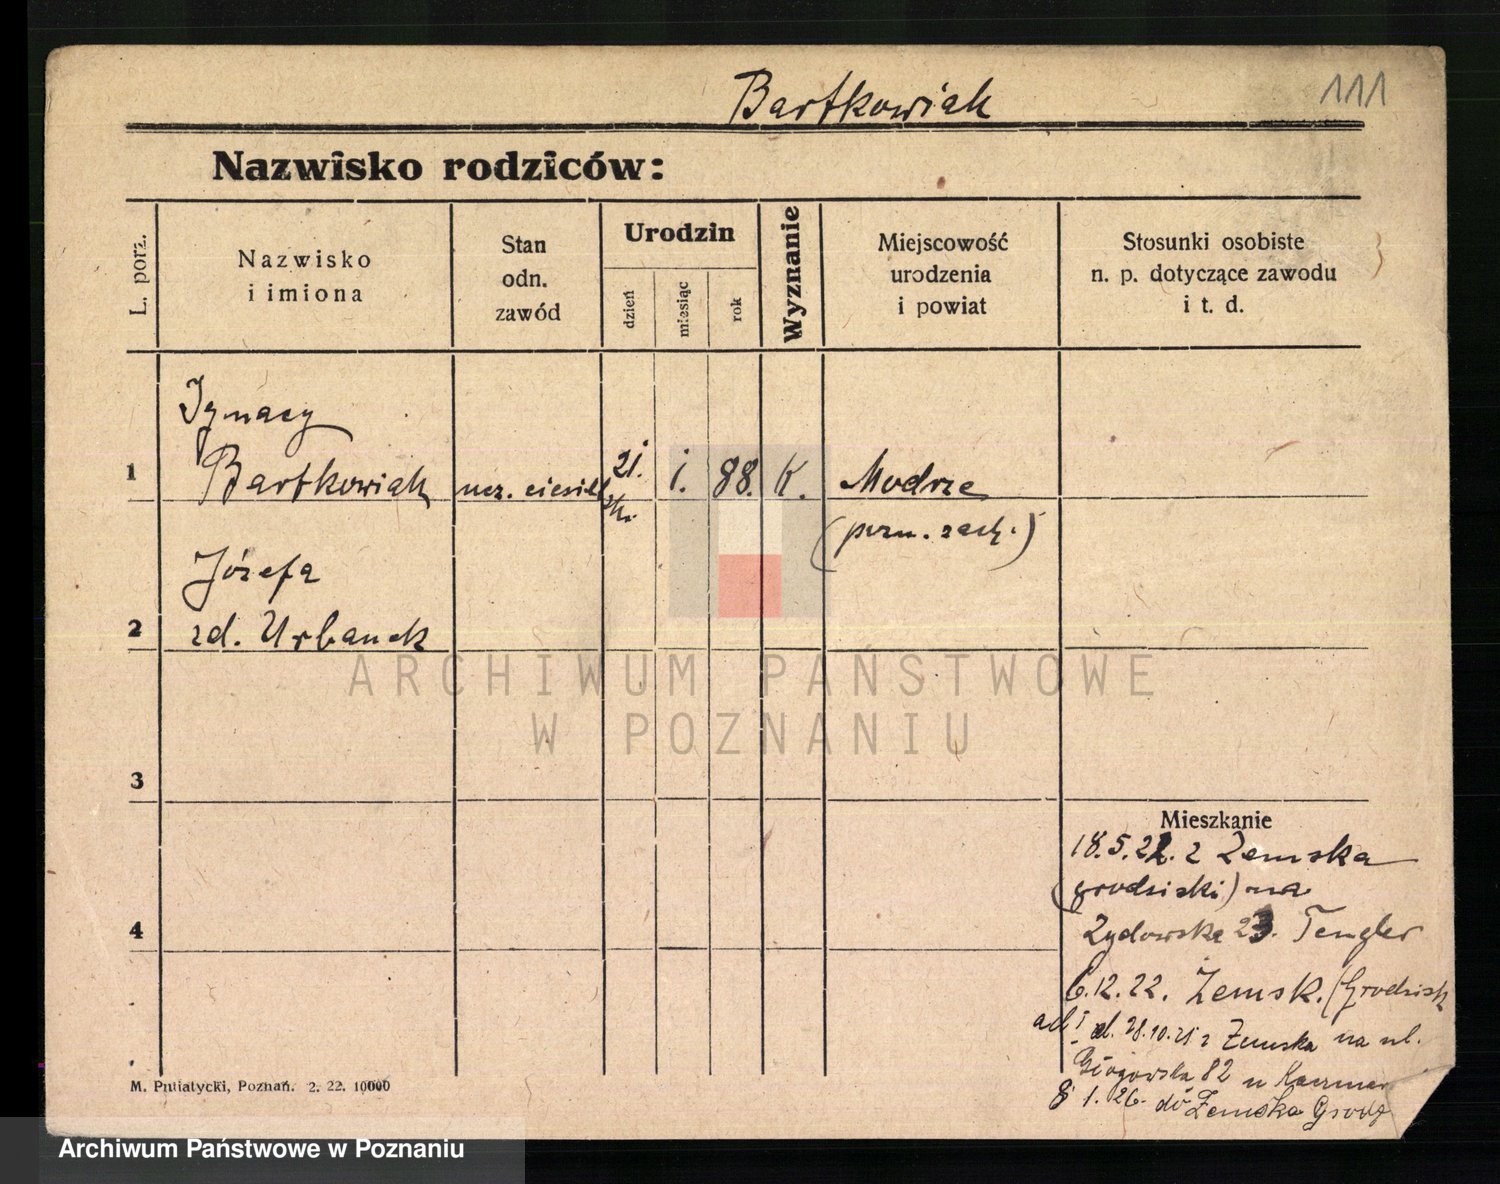 Bartkowiak
111
Nazwisko rodziców:
L. porz.
Nazwisko
i imiona
Stan
odn.
zawód
Urodzin
dzień
miesiąc
rok
Wyznanie
Miejscowość
urodzenia
i powiat
Stosunki osobiste
n. p. dotyczące zawodu
i t. d.
Ignacy
1 Bartkowiak ucz. ciesiel 21. i. 88. K. Modrze
ski
(pozn. zach.)
Józefa
2 zd. Urbanek
3
4
Mieszkanie
18.5.22. z Żemska
(grodziski) na
Żydowska 23. Tengler
6.12.22. Żemsk. (Grodzisk
ad I d. 28.10.21 z Żemska na ul.
Głogowska 82 u Kaczmar
8 1. 26. do Żemska Grodz
M. Putiatycki, Poznań. 2. 22. 10000
ARCHIWUM PAŃSTWOWE
W POZNANIU
Archiwum Państwowe w Poznaniu